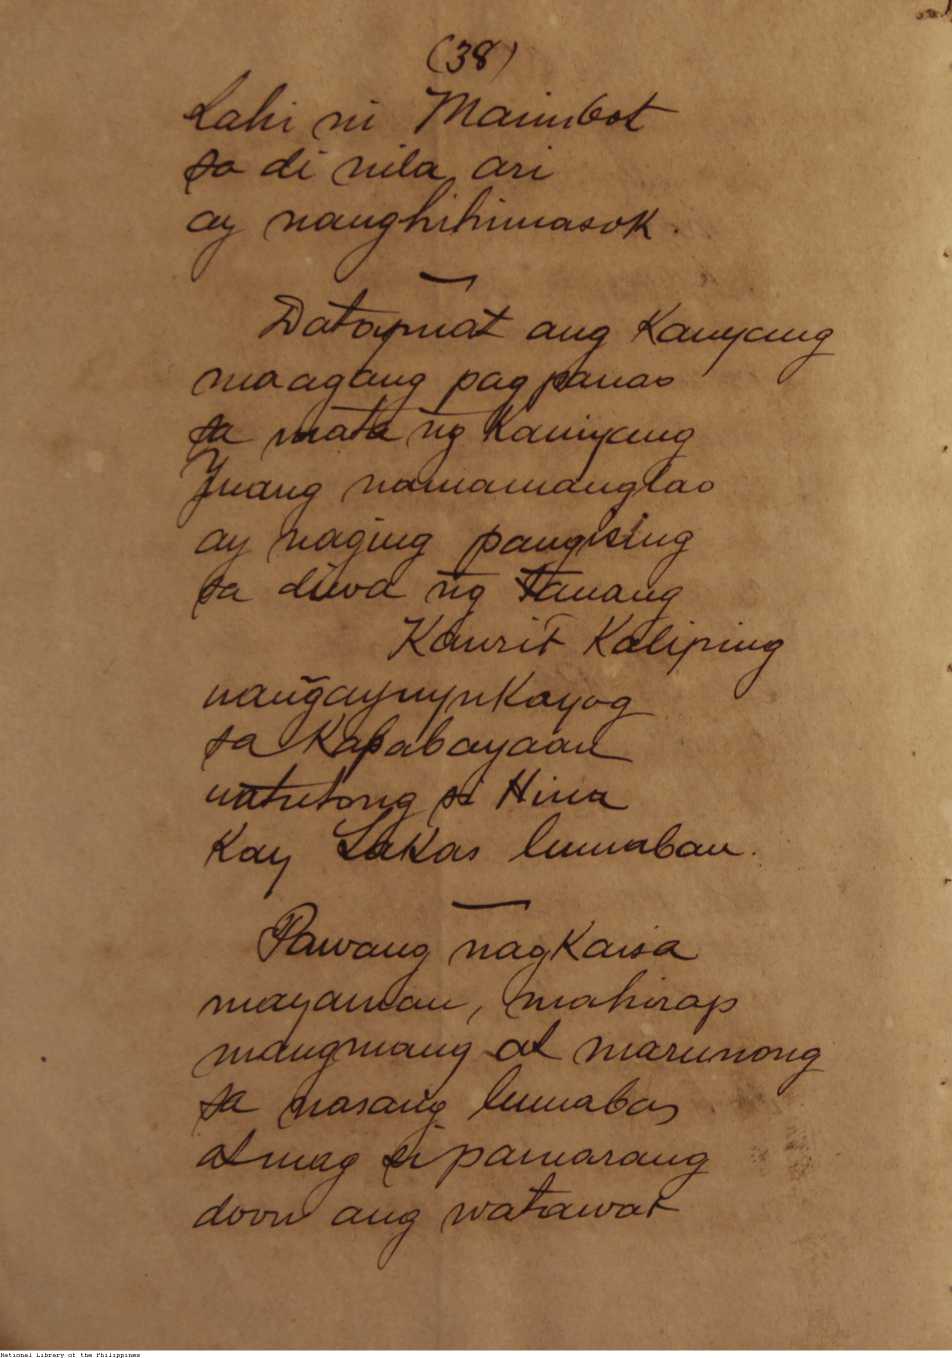 (38)
Lahi ni Maimbot
sa di nila ari
ay nanghihimasok.
Datapuat ang Kanyang
maagang pagpanao
sa mata ng̃ Kaniyang
Ynang namamanglao
ay naging pangising
sa diwa ng̃ tanang
Kawrit Kaliping
nang̃ayuyukayog
sa Kapabayaan
natutong si Hina
Kay Lakas lumaban.
Pawang nagkaisa
mayaman, mahirap
mangmang at marunong
sa nasang lumabas
at mag si pamarang
doon ang watawat
National Library of the Philippines